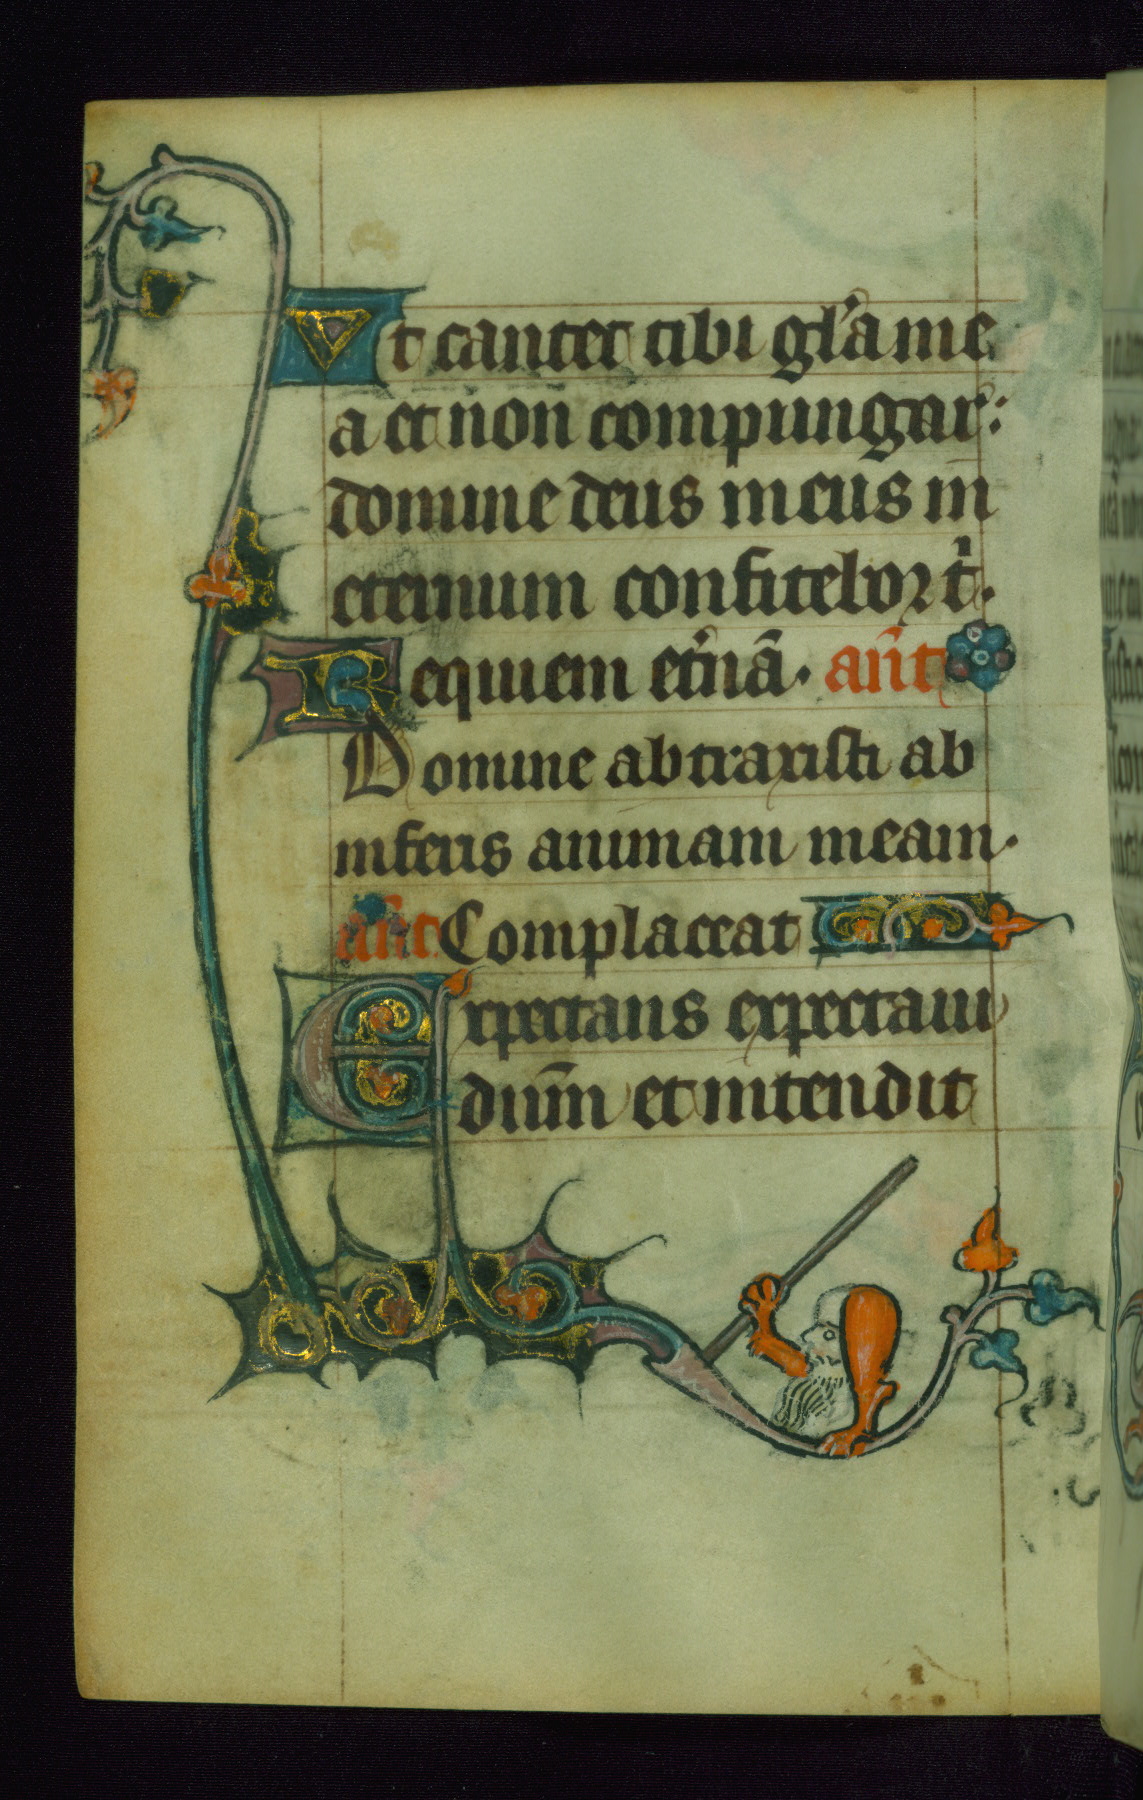 Vt cantet tibi gl'a me
a et non compungar:
domine deus meus in
eternum confitebor t'.
Requiem et'nā. añt
Domine abtraxisti ab
inferis animam meam.
añt Complaceat
Expectans expectaui
dnūm et intendit